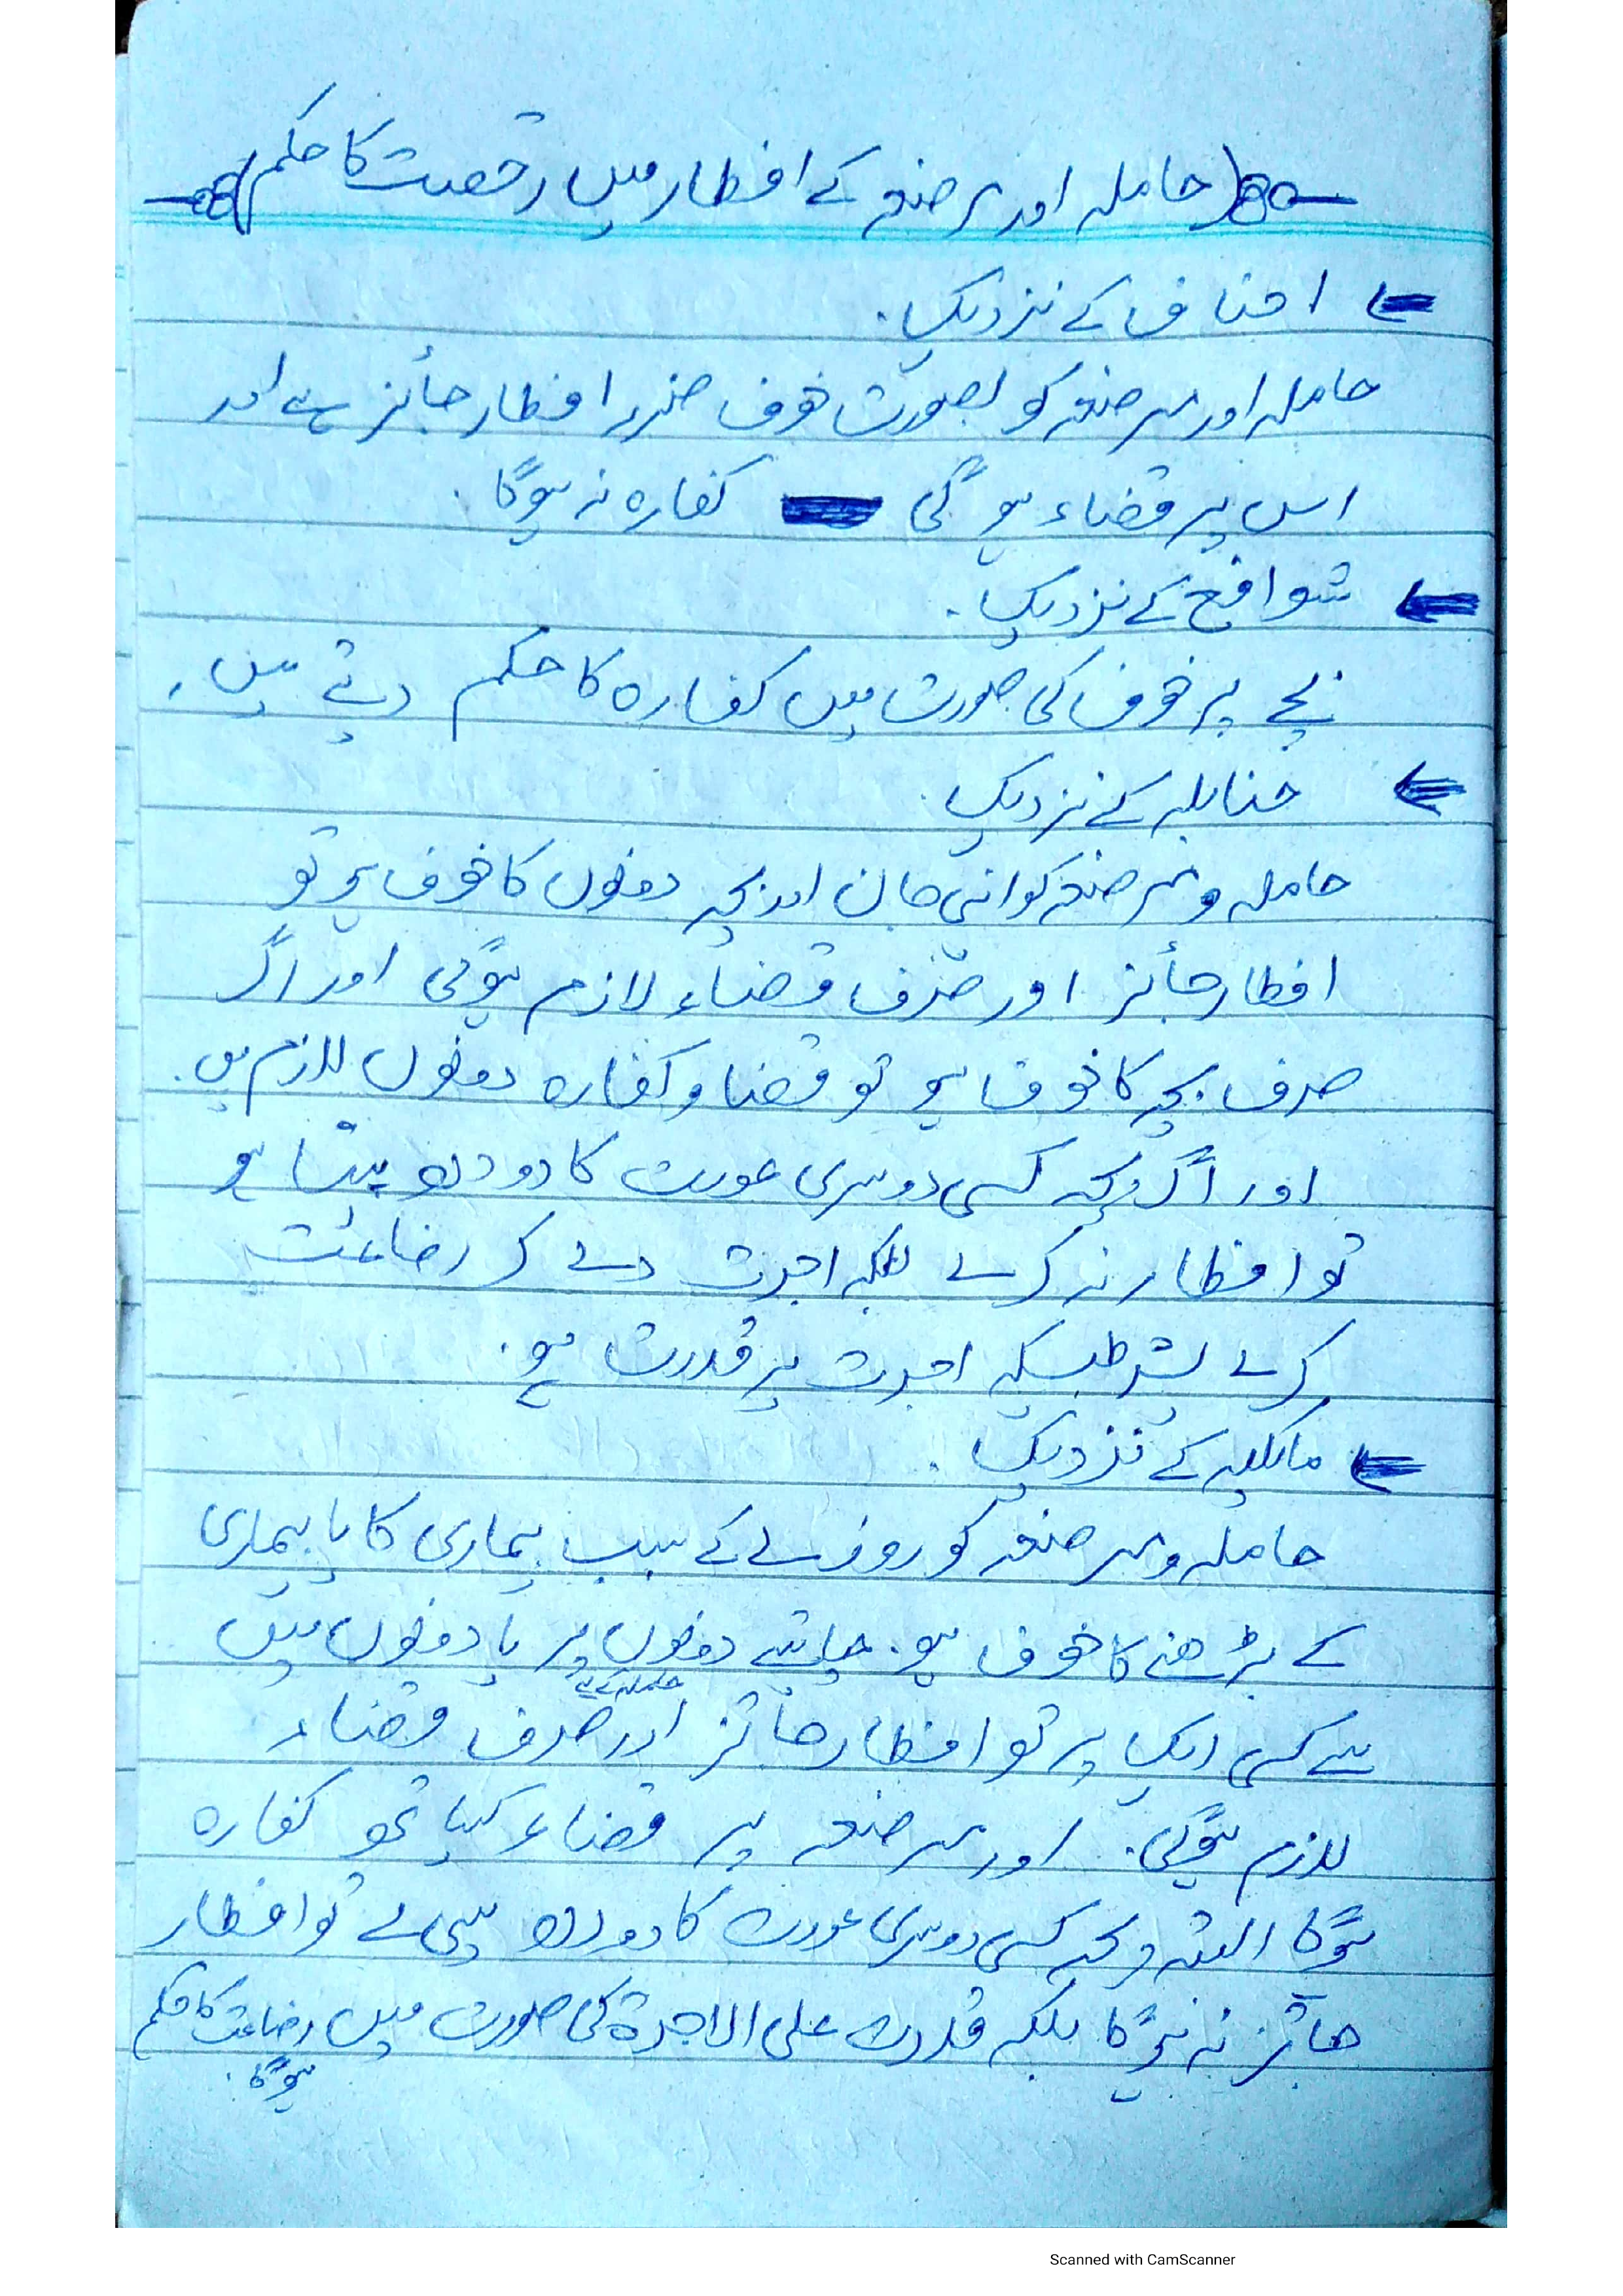 حاملہ اور مرضعہ کے افطار میں رخصت کا حکم
احناف کے نزدیک۔
حاملہ اور مرضعہ کو بصورت خوف ضرر افطار جائز ہے اور
اس پر قضاء ہوگی کفارہ نہ ہوگا۔
شوافع کے نزدیک۔
بچے پر خوف کی صورت میں کفارہ کا حکم دیتے ہیں۔
حنابلہ کے نزدیک۔
حاملہ و مرضعہ کو اپنی جان اور بچہ دونوں کا خوف ہو تو
افطار جائز اور صرف قضاء لازم ہوگی اور اگر
صرف بچہ کا خوف ہو تو قضا و کفارہ دونوں لازم ہیں۔
اور اگر بچہ کسی دوسری عورت کا دودھ پیتا ہو
تو افطار نہ کرے بلکہ اجرت دے کر رضاعت
کرے بشرطیکہ اجرت پر قدرت ہو۔
مالکیہ کے نزدیک۔
حاملہ و مرضعہ کو روزے کے سبب بیماری کا یا بیماری
کے بڑھنے کا خوف ہو۔ چاہیے دونوں پر یا دونوں میں
سے کسی ایک پر تو افطار جائز اور حاملہ کے لیے صرف قضاء
لازم ہوگی۔ اور مرضعہ پر قضاء کیساتھ کفارہ
ہوگا البتہ بچہ کسی دوسری عورت کا دودھ پی لے تو افطار
جائز نہ ہوگا بلکہ قدرت علی الاجرة کی صورت میں رضاعت کا حکم
ہوگا۔
Scanned with CamScanner